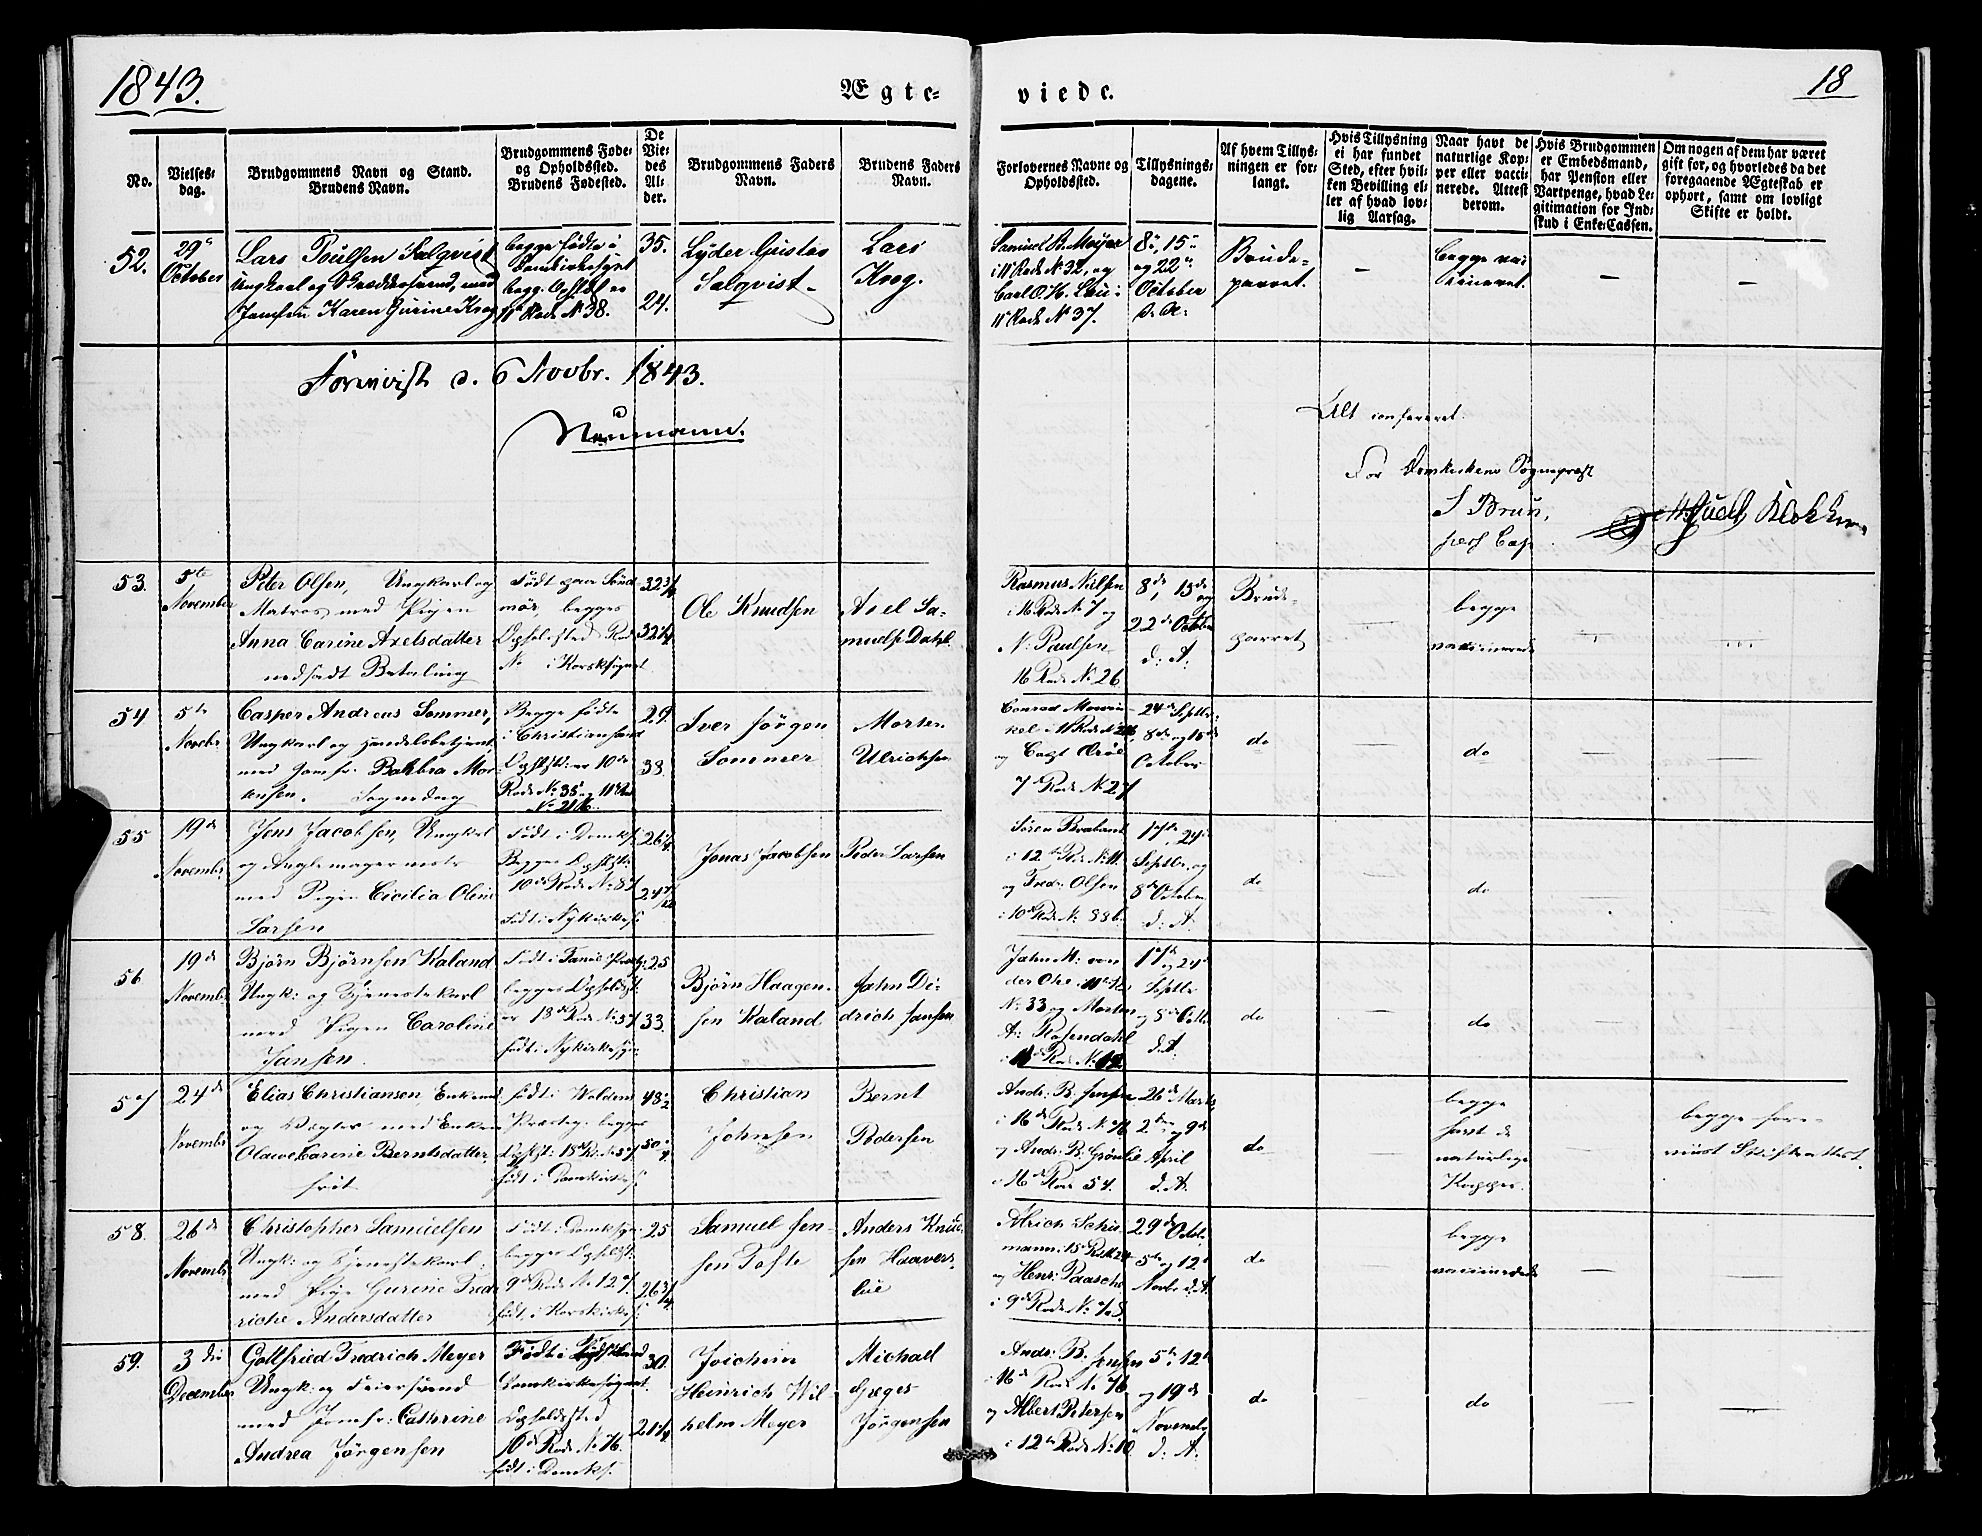 1843.
Ægte-
viede.
18
No.
Vielses-
dag.
Brudgommens Navn og Stand.
Brudens Navn.
Brudgommens Føde-
og Opholdssted.
Brudens Fødested.
De
Vie-
des
Al-
der.
Brudgommens Faders
Navn.
Brudens Faders
Navn.
Forlovernes Navne og
Opholdssted.
Tillysnings-
dagene.
Af hvem Tillys-
ningen er for-
langt.
Hvis Tillysning
ei har fundet
Sted, efter hvil-
ken Bevilling el-
ler af hvad lov-
lig Aarsag.
Naar havt de
naturlige Kop-
per eller vacci-
nerede. Attest
derom.
Hvis Brudgommen
er Embedsmand,
har Pension eller
Vartpenge, hvad Le-
gitimation for Ind-
skud i Enke-Cassen.
Om nogen af dem har været
gift før, og hvorledes da det
foregaaende Ægteskab er
ophørt, samt om lovligt
Skifte er holdt.
52.
29
October
Lars Poulsen Salqvist
Ungkarl og med
Jomfru Karen Gurine Krog
begge fødte i
Domkirkesognt
begg. Opst er
11 Rode No 38.
35.
24.
Lyder Gustav
Salqvist
Lars
Krog.
Samuel B. Meyer
i 11 Rode No 32, og
Carl O. H.
11 Rode No 37.
8, 15
og 22
October
d. A.
Brude-
parret.
begge va-
cineret.
Foreviist d. 6 Novbr. 1843.
Neumann.
Alt confereret
For Domkirkens Sognepræst
J Brun,
pers Cap
Klokker
53.
5te
November
Peter Olsen, Ungkarl og
Matros med Pigen
Anna Carine Axelsdatter
nedsadt Betaling
Født paa Sønd
mør, begges
Opholdsted Rode
No i Korsksognet
32 3/4
32 1/4
Ole Knudsen
Axel Sa-
muels Dahl
Rasmus Nielsen
i 16 Rode No 7 og
N. Paulsen
16 Rode No 26
8de, 15de og
22de October
d: A:
Brude-
parret
begge
vacinerede
54
5te
Novebr
Casper Andreas Sommer,
Ungkarl og Handelsbetjent
med Jomfr. Barbra Mor-
tensen. Sognedag
Begge fødte
i Christiansand
Opholdst: er 10de
Rode No 38 og 11 Rode
No 21 b.
29.
33.
Iver Jørgen
Sommer
Morten
Ulrichsen
Conrad
og Capt
7de Rode No 27
24de Septbr.
8de og 15de
October
do
do
55
19de
Novembr
Jens Jacobsen, Ungkarl
og Anglemagermester
med Pigen Cicilia Oline
Larsen
Født i Domks:
Begges Opholdst:
10de Rode No 87
født i Nykirkes:
26 1/4
24 7/12
Jonas Jacobsen
Peder Larsen
Søren Brabant
i 12te Rode No 11.
og Fredr: Olsen
i 10de Rode No 88 b.
17de, 24de
Septbr. og
8de October
d: A.
do
do
56
19de
Novembr
Bjørn Bjørnsen Kaland
Ungk: og Tjenestekarl
med Pigen Caroline
Jansen.
Født i Fanøe Præstg:
begges Opholdst:
er 18de Rode No 57
født i Nykirkesogn:
25
33.
Bjørn Haagen-
sen Kaland
Jahn Di-
drich Jansen
Jahn M: von
der Ohe
No 33 og Morten
A: Rosendahl
17de og 24de
Septbr
og 8de Octbr
d. A.
do
do
57
24de
Novembr
Elias Christiansen, Enkemd
og Vægter med Enken
Olave Carine Berntsdatter,
frit
født i Woldens
Præsteg. begges
Opholdst: 18de R. No 57
født i Domkirkes:
48
50
Christian
Johnsen
Bernt
Pedersen
Andr: B. Jensen
i 16de Rode No 76
og Andr: B: Grønlie
i 16de Rode 54.
26de Marts,
2den og 9de
April
d. A.
do
begge
havt de
naturlige
Kopper.
begge fore-
viist Skifteattest.
58.
26de
Novembr
Christopher Samuelsen
Ungk: og Tjenestekarl
med Pige Gurine Fred
riche Andersdatter
Født i Domksogn:
begges Opholdst:
9de Rode No 127
født i Korskirkes:
25
26 3/4
Samuel Jen-
sen Tofte
Anders Knud-
sen Haavers-
lie
Alrich Schu-
mann i 15 Rode 24
og Henr: Paasche
i 9de Rode No
29de Octbr:
5te og 12te
Novbr d. A.
do
begge
vaccinerede
59.
3die
December
Gottfried Fredrich Meyer
Ungk: og Feiersvend
med Jomfr: Cathrine
Andrea Jørgensen
Født i
Domkirkesognet.
Opholdsted
16de Rode No 76.
født i Domks.
30.
21 1/4
Joichim
Heinrich Wil-
helm Meyer
Michael
Geeger
Jørgensen
Andr: B. Jensen
i 16de Rode No 76
og Albert Petersen
i 12te Rode No 10
5te, 12te
og 19de
Novembr
d: A.
do
do